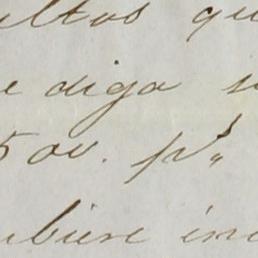 ultos qu
e diga s
5 ov. pr,,
ubiere in